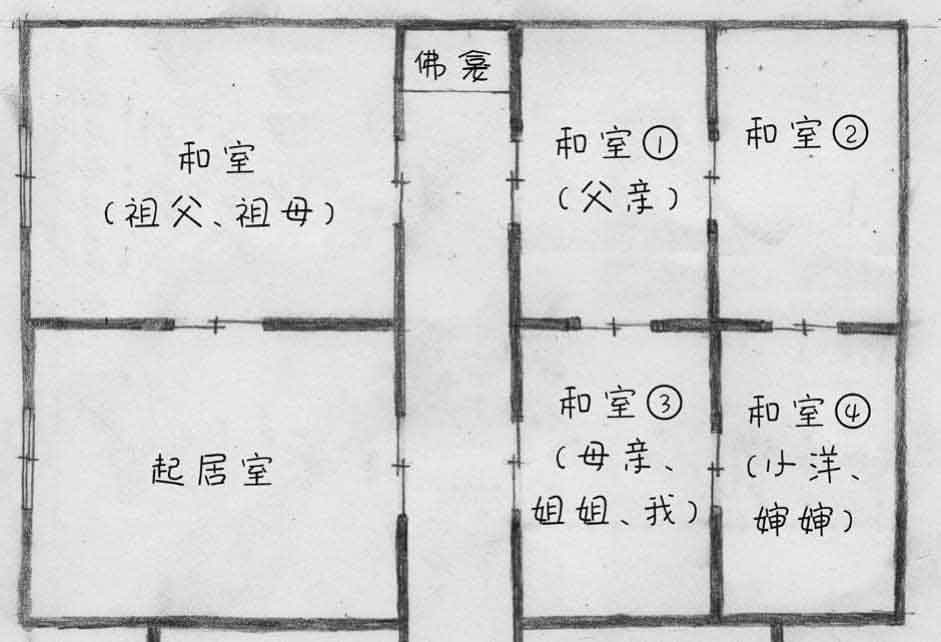 佛龛
和室
（祖父、祖母）
和室①
（父亲）
和室②
起居室
和室③
（母亲、
姐姐、我）
和室④
（小洋、
婶婶）